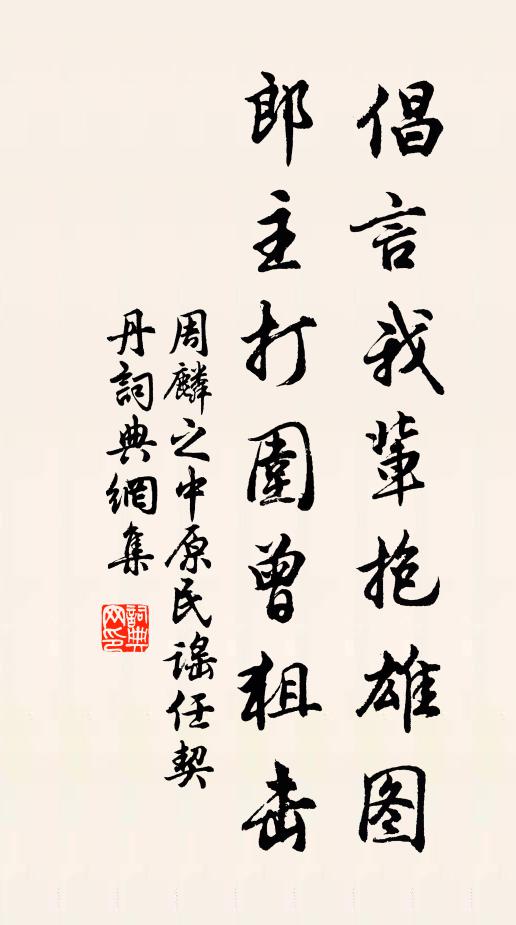 倡言我輩抱雄图
郎主打圍曾狙击
周麟之中原民謡任契
丹詞典網集
詞典网印